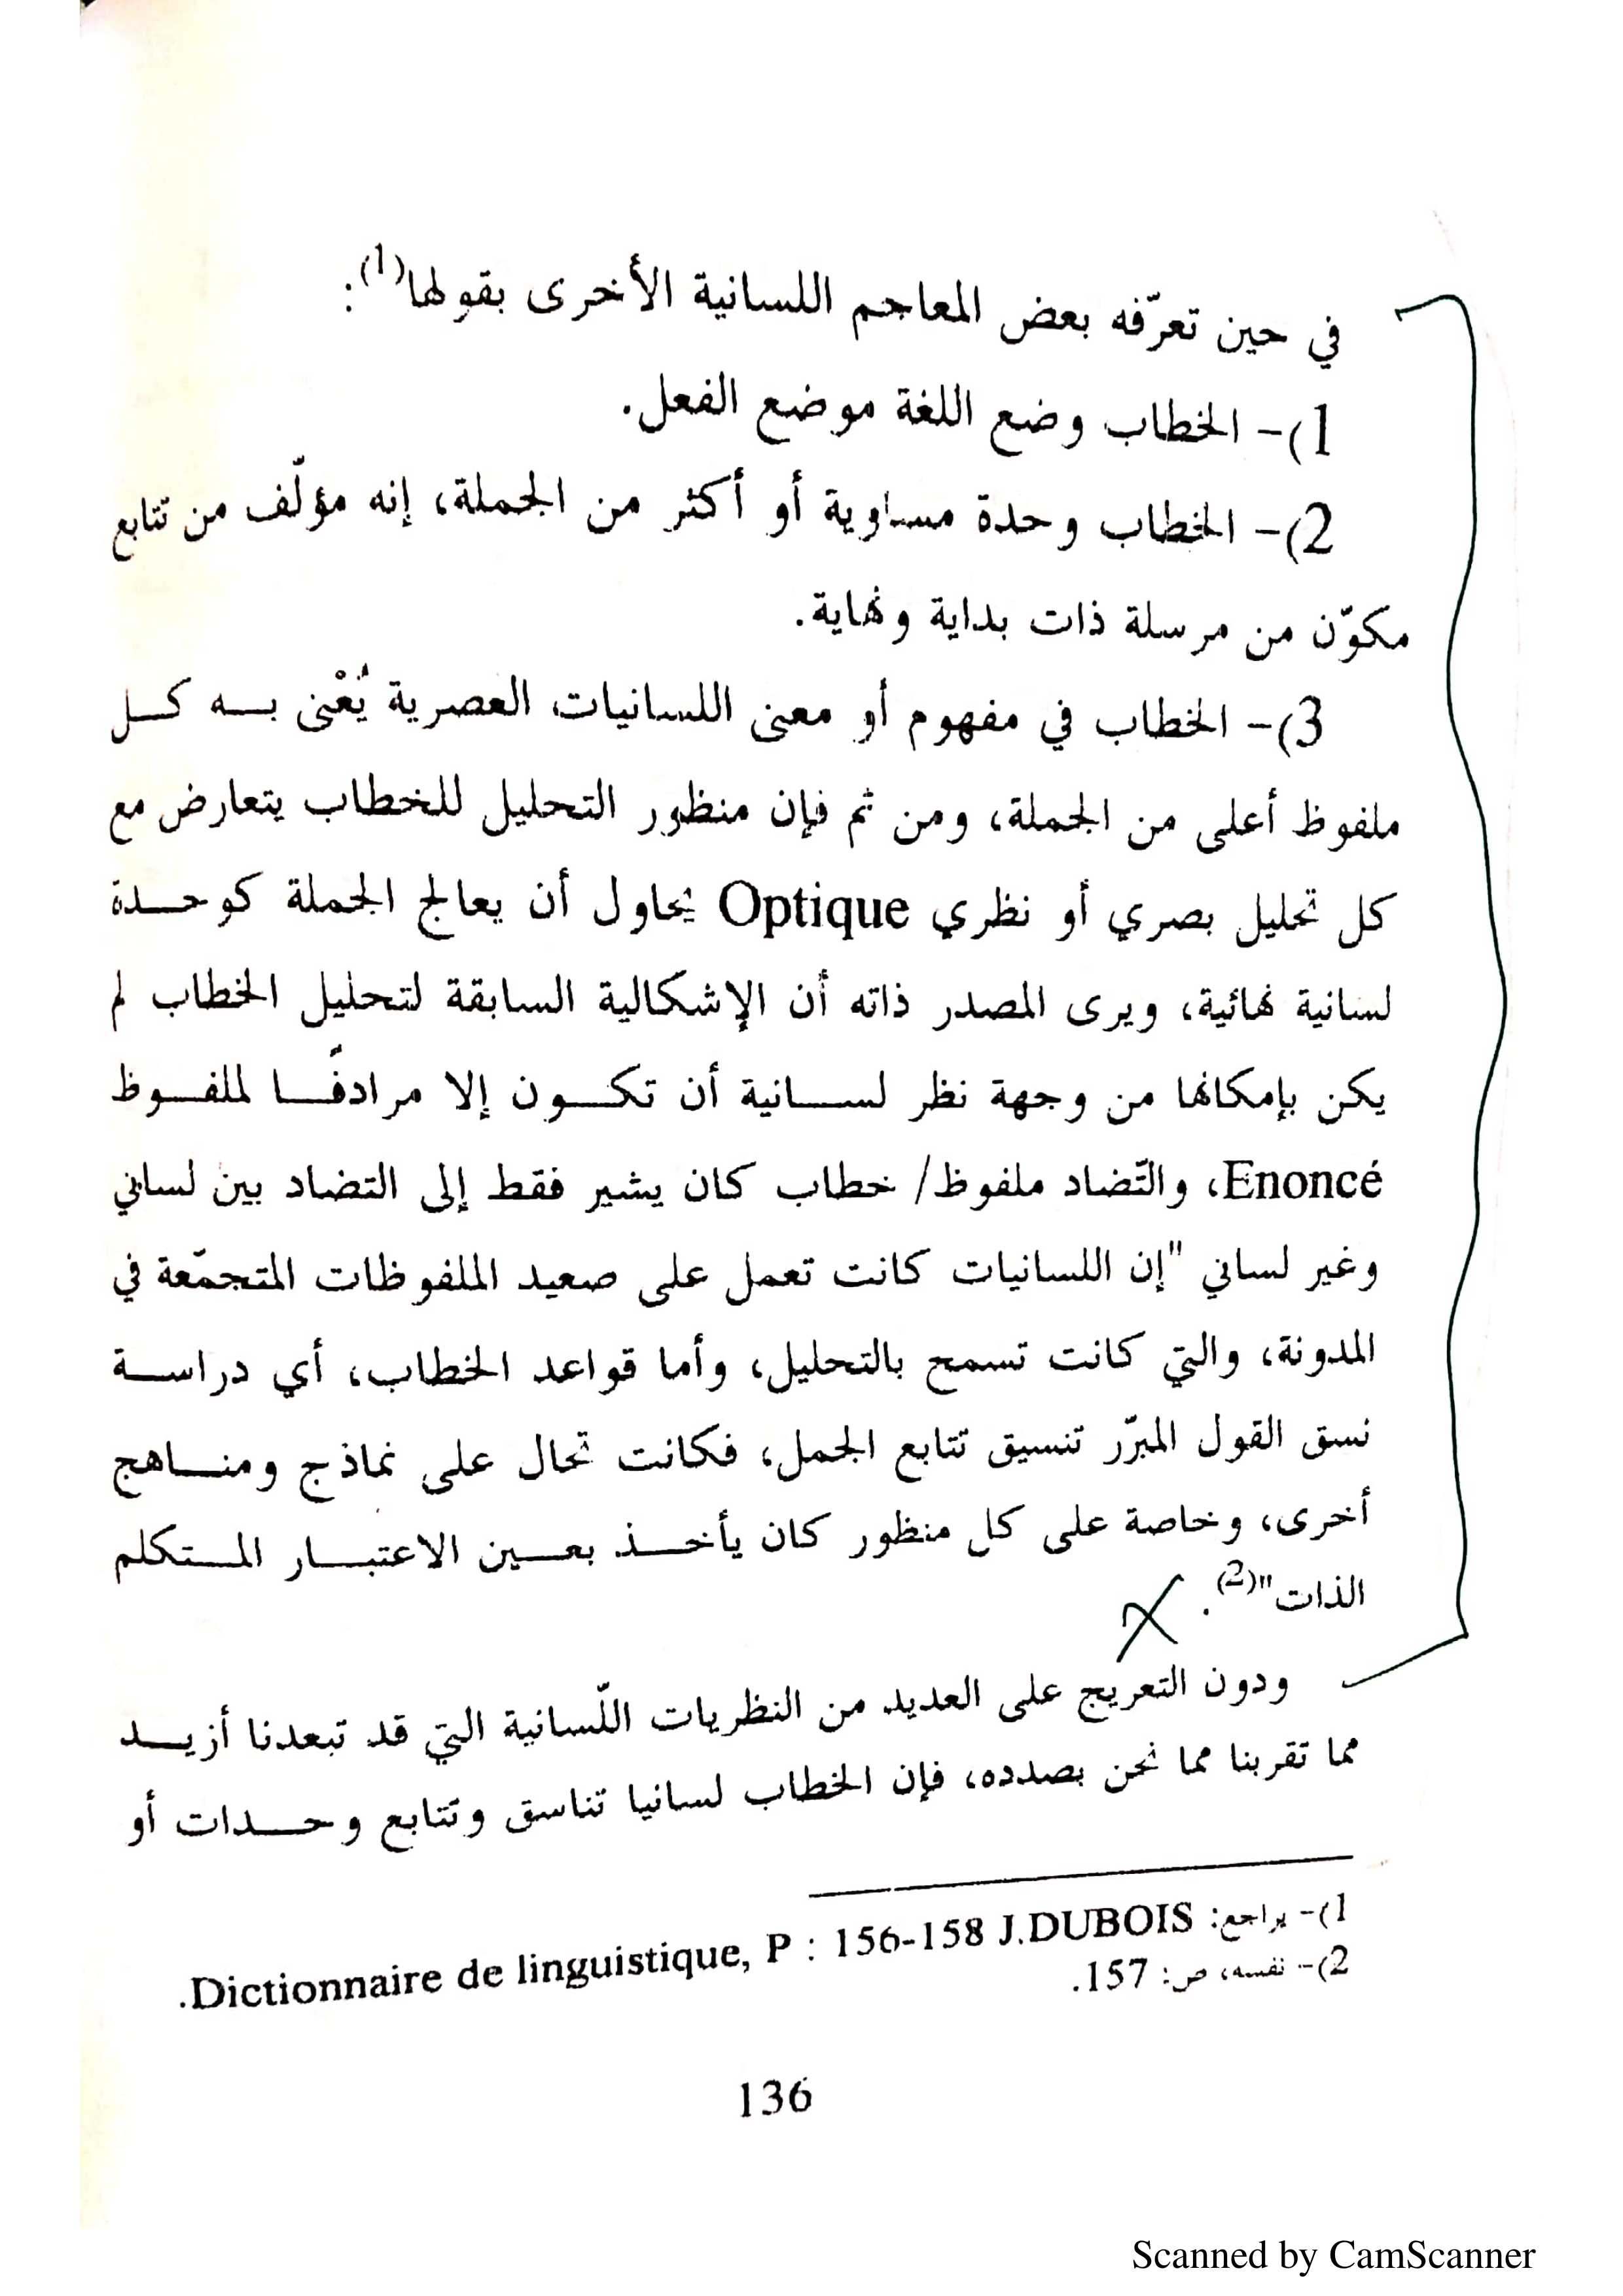 في حين تعرّفه بعض المعاجم اللسانية الأخرى بقولها(1):
1)- الخطاب وضع اللغة موضع الفعل.
2)- الخطاب وحدة مساوية أو أكثر من الجملة، إنه مؤلّف من تتابع
مكوّن من مرسلة ذات بداية ونهاية.
3)- الخطاب في مفهوم أو معنى اللسانيات العصرية يُعْنى بـــه كـــل
ملفوظ أعلى من الجملة، ومن ثم فإن منظور التحليل للخطاب يتعارض مع
كل تحليل بصري أو نظري Optique يحاول أن يعالج الجملة كوحـــدة
لسانية نهائية، ويرى المصدر ذاته أن الإشكالية السابقة لتحليل الخطاب لم
يكن بإمكانها من وجهة نظر لســـانية أن تكـــون إلا مرادفًـــا للملفـــوظ
Enoncé، والتّضاد ملفوظ/ خطاب كان يشير فقط إلى التضاد بين لساني
وغير لساني "إن اللسانيات كانت تعمل على صعيد الملفوظات المتجمّعة في
المدونة، والتي كانت تسمح بالتحليل، وأما قواعد الخطاب، أي دراســـة
نسق القول المبرّر تنسيق تتابع الجمل، فكانت تحال على نماذج ومنـــاهج
أخرى، وخاصة على كل منظور كان يأخـــذ بعـــين الاعتبـــار المـــتكلم
الذات"(2).
ودون التعريج على العديد من النظريات اللّسانية التي قد تبعدنا أزيـــد
مما تقربنا مما نحن بصدده، فإن الخطاب لسانيا تناسق وتتابع وحـــدات أو
1)- يراجع: Dictionnaire de linguistique, P : 156-158 J.DUBOIS.
2)- نفسه، ص: 157.
136
Scanned by CamScanner